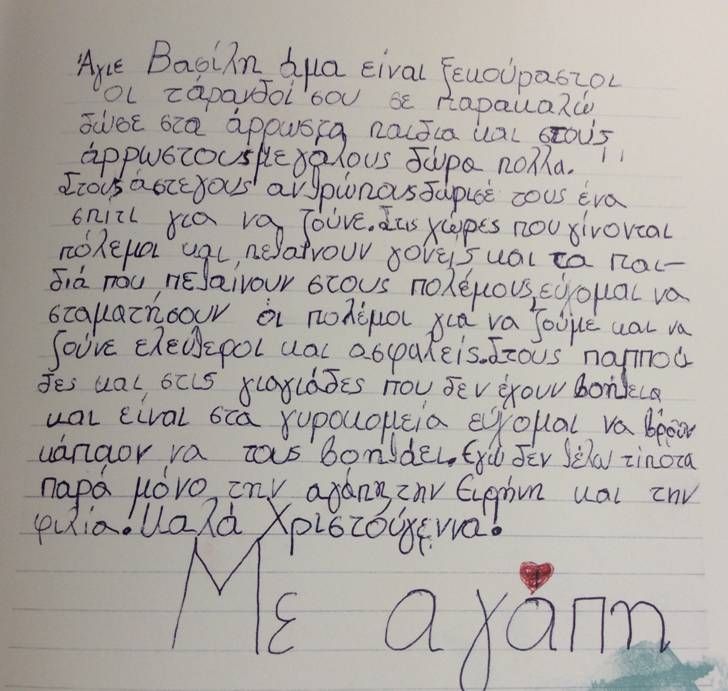 Άγιε Βασίλη άμα είναι ξεκούραστοι
οι τάρανδοί σου σε παρακαλώ
δώσε στα άρρωστα παιδια και στούς
άρρωστους μεγάλους δώρα πολλα.
Στους άστεγους ανθρώπους δώρισέ τους ένα
σπίτι για να ζούνε. Στις χώρες που γίνονται
πόλεμοι και πεθαίνουν γονείς και τα παι-
διά που πεθαίνουν στους πολέμους, εύχομαι να
σταματήσουν οι πολέμοι για να ζούμε και να
ζούνε ελεύθεροι και ασφαλείς. Στους παππού
δες και στις γιαγιάδες που δεν έχουν βοήθεια
και είναι στα γυροκομεία εύχομαι να βρουν
κάποιον να τους βοηθάει. Εγώ δεν θέλω τίποτα
παρά μόνο την αγάπη, την Ειρήνη και την
φιλία. Καλά Χριστούγεννα!
Με αγάπη